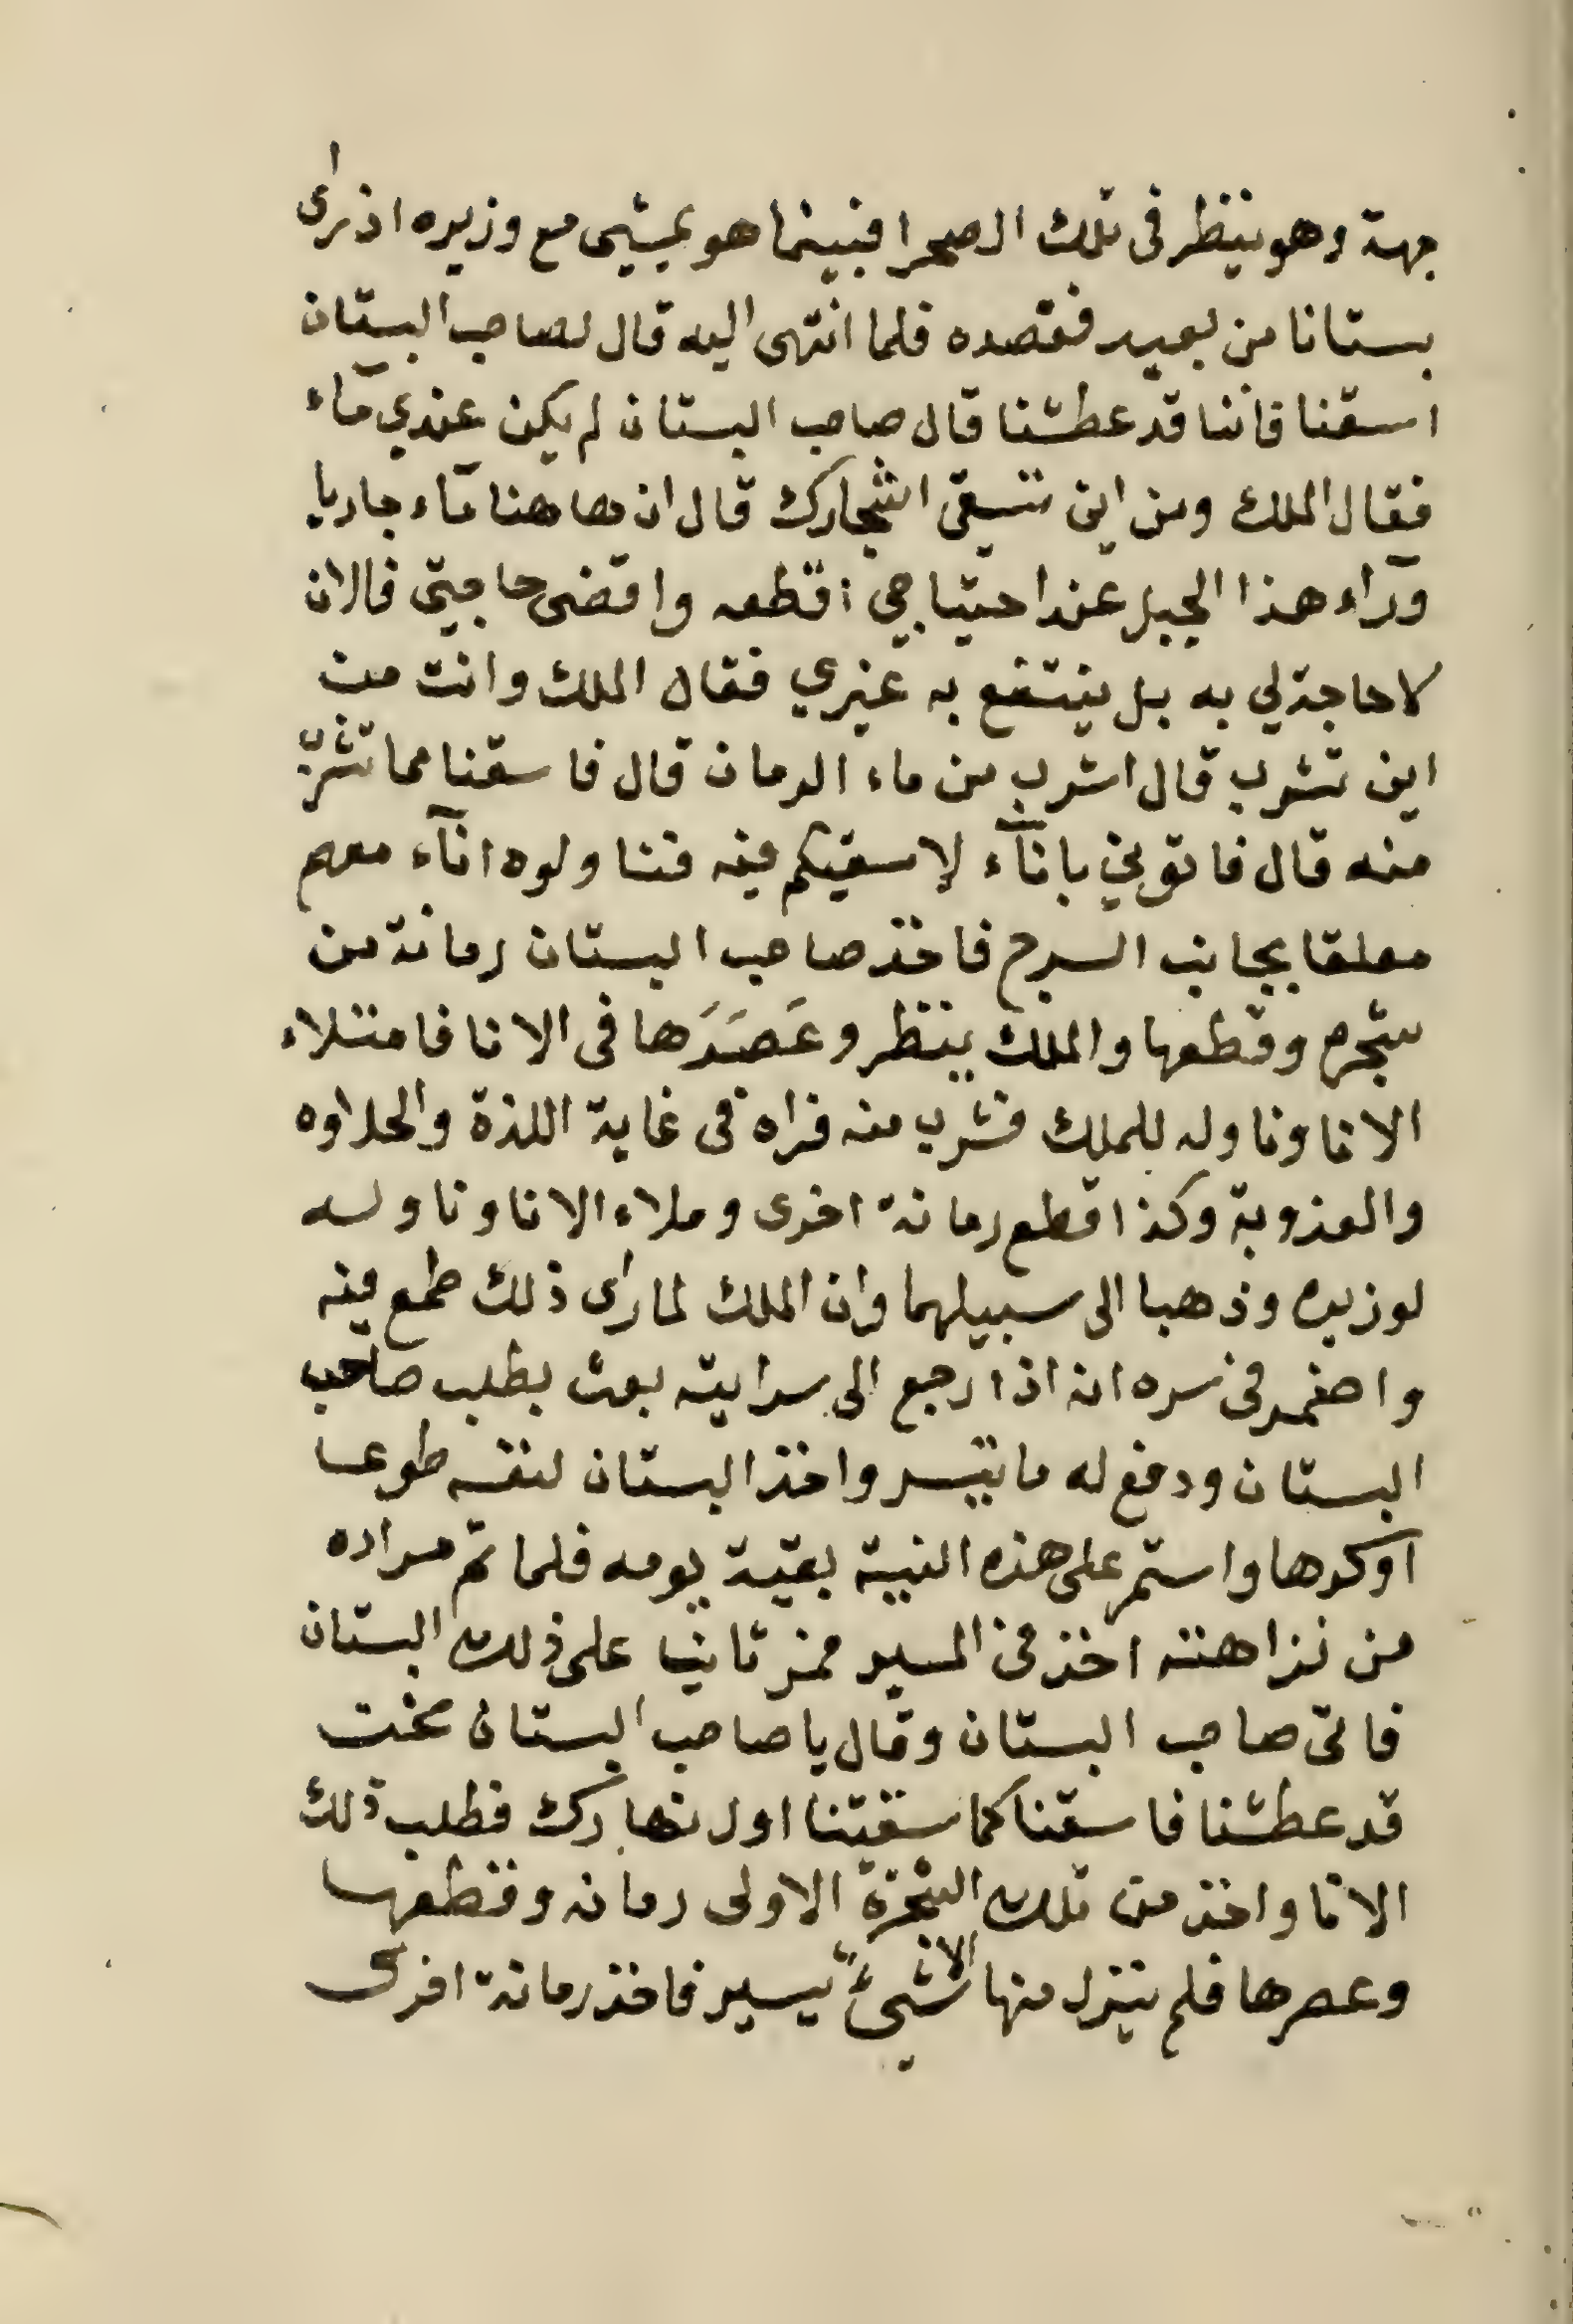 جهة وهو ينظر في تلك الصحرا فبينما هو يمشي مع وزيره اذ راى
بستانا من بعيد فقصده فلما انتهى اليه قال لصاحب البستان
اسقنا فاننا قد عطشنا قال صاحب البستان لم يكن عندي مآء
فقال الملك ومن اين تسقى اشجارك قال ان هاهنا مآء جاريا
ورآء هذا الجبل عند احتياجي اقطعه واقضى حاجتي فالان
لا حاجة لي به بل ينتفع به غيري فقال الملك وانت من
اين تشرب قال اشرب من ماء الرمان قال فاسقنا مما تشرب
منه قال فاتوني بانآء لاسقيكم فيه فناولوه انآء معهم
معلقا بجانب السرج فاخذ صاحب البستان رمانة من
شجره وقطعها والملك ينظر وعَصَرَها في الانا فامتلاء
الانا وناوله للملك فشرب منه فراه في غاية اللذة والحلاوه
والعذوبة وكذا قطع رمانة اخرى وملاء الانا وناوله
لوزيره وذهبا الى سبيلهما وان الملك لما راى ذلك طمع فيه
واضمر في سره انه اذا رجع الى سرايته بعث بطلب صاحب
البستان ودفع له ما تيسر واخذ البستان لنفسه طوعا
اوكرها واستمر على هذه النية بقية يومه فلما تم مراده
من نزاهته اخذ في المسير فمر ثانيا على ذلك البستان
فاتى صاحب البستان وقال يا صاحب البستان نحن
قد عطشنا فاسقنا كما سقيتنا اول نهارك فطلب ذلك
الانا واخذ من تلك الشجرة الاولى رمانه وقطعها
وعصرها فلم ينزل منها الا شيء يسير فاخذ رمانة اخرى